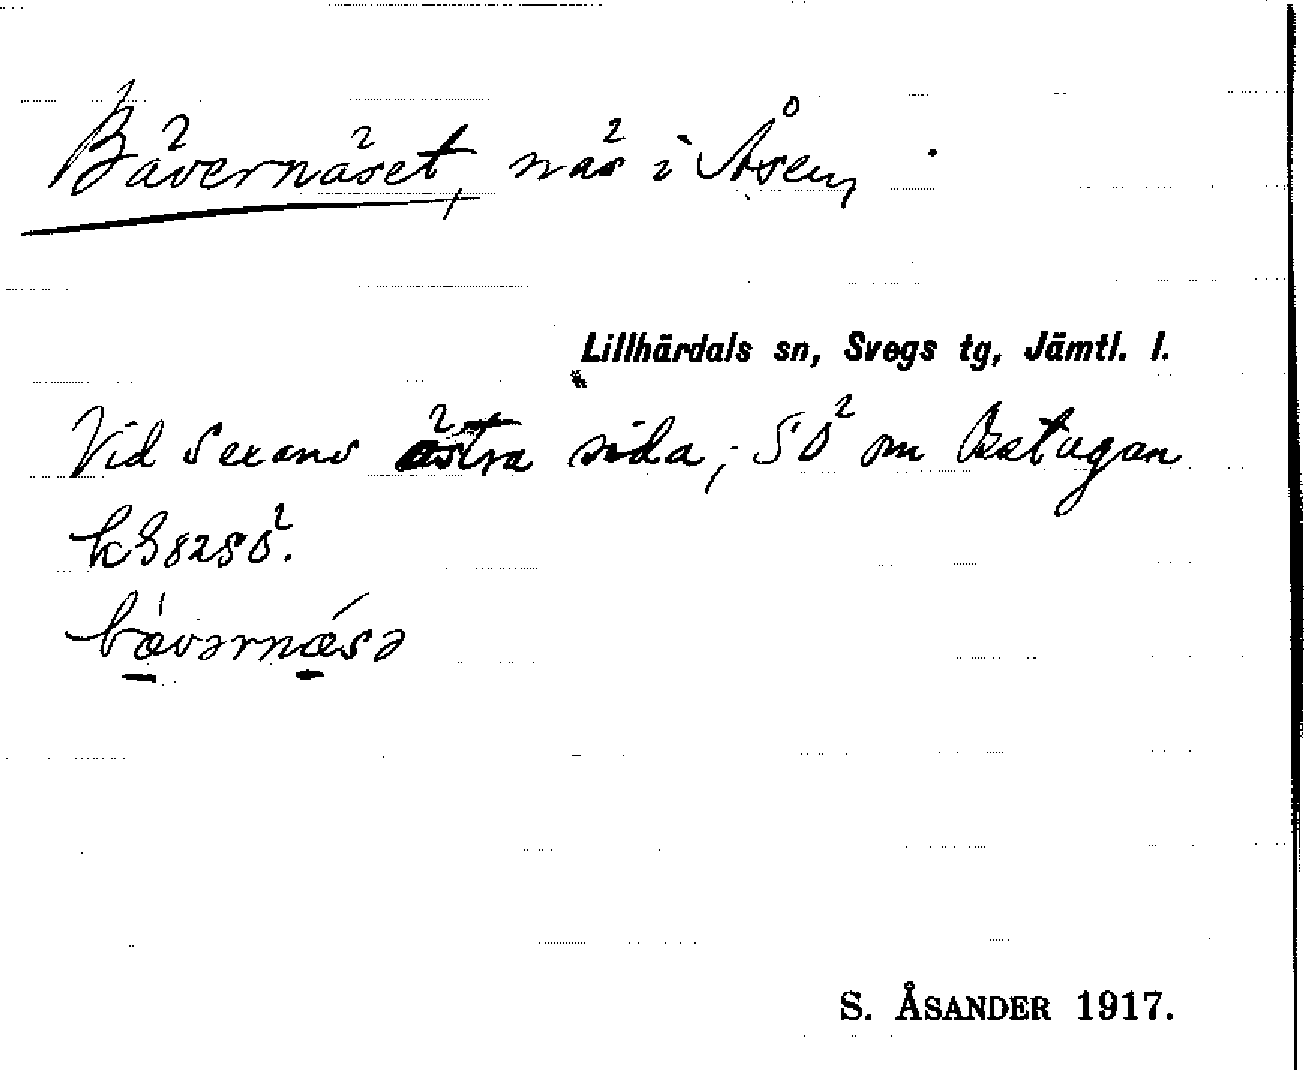 Bävernäset, näs i Åsen,
Lillhärdals sn, Svegs tg, Jämtl. l.
Vid Sexans östra sida, SÖ om Oxstugan
kG82SÖ.
bǽvərnǽsə
S. ÅSANDER 1917.